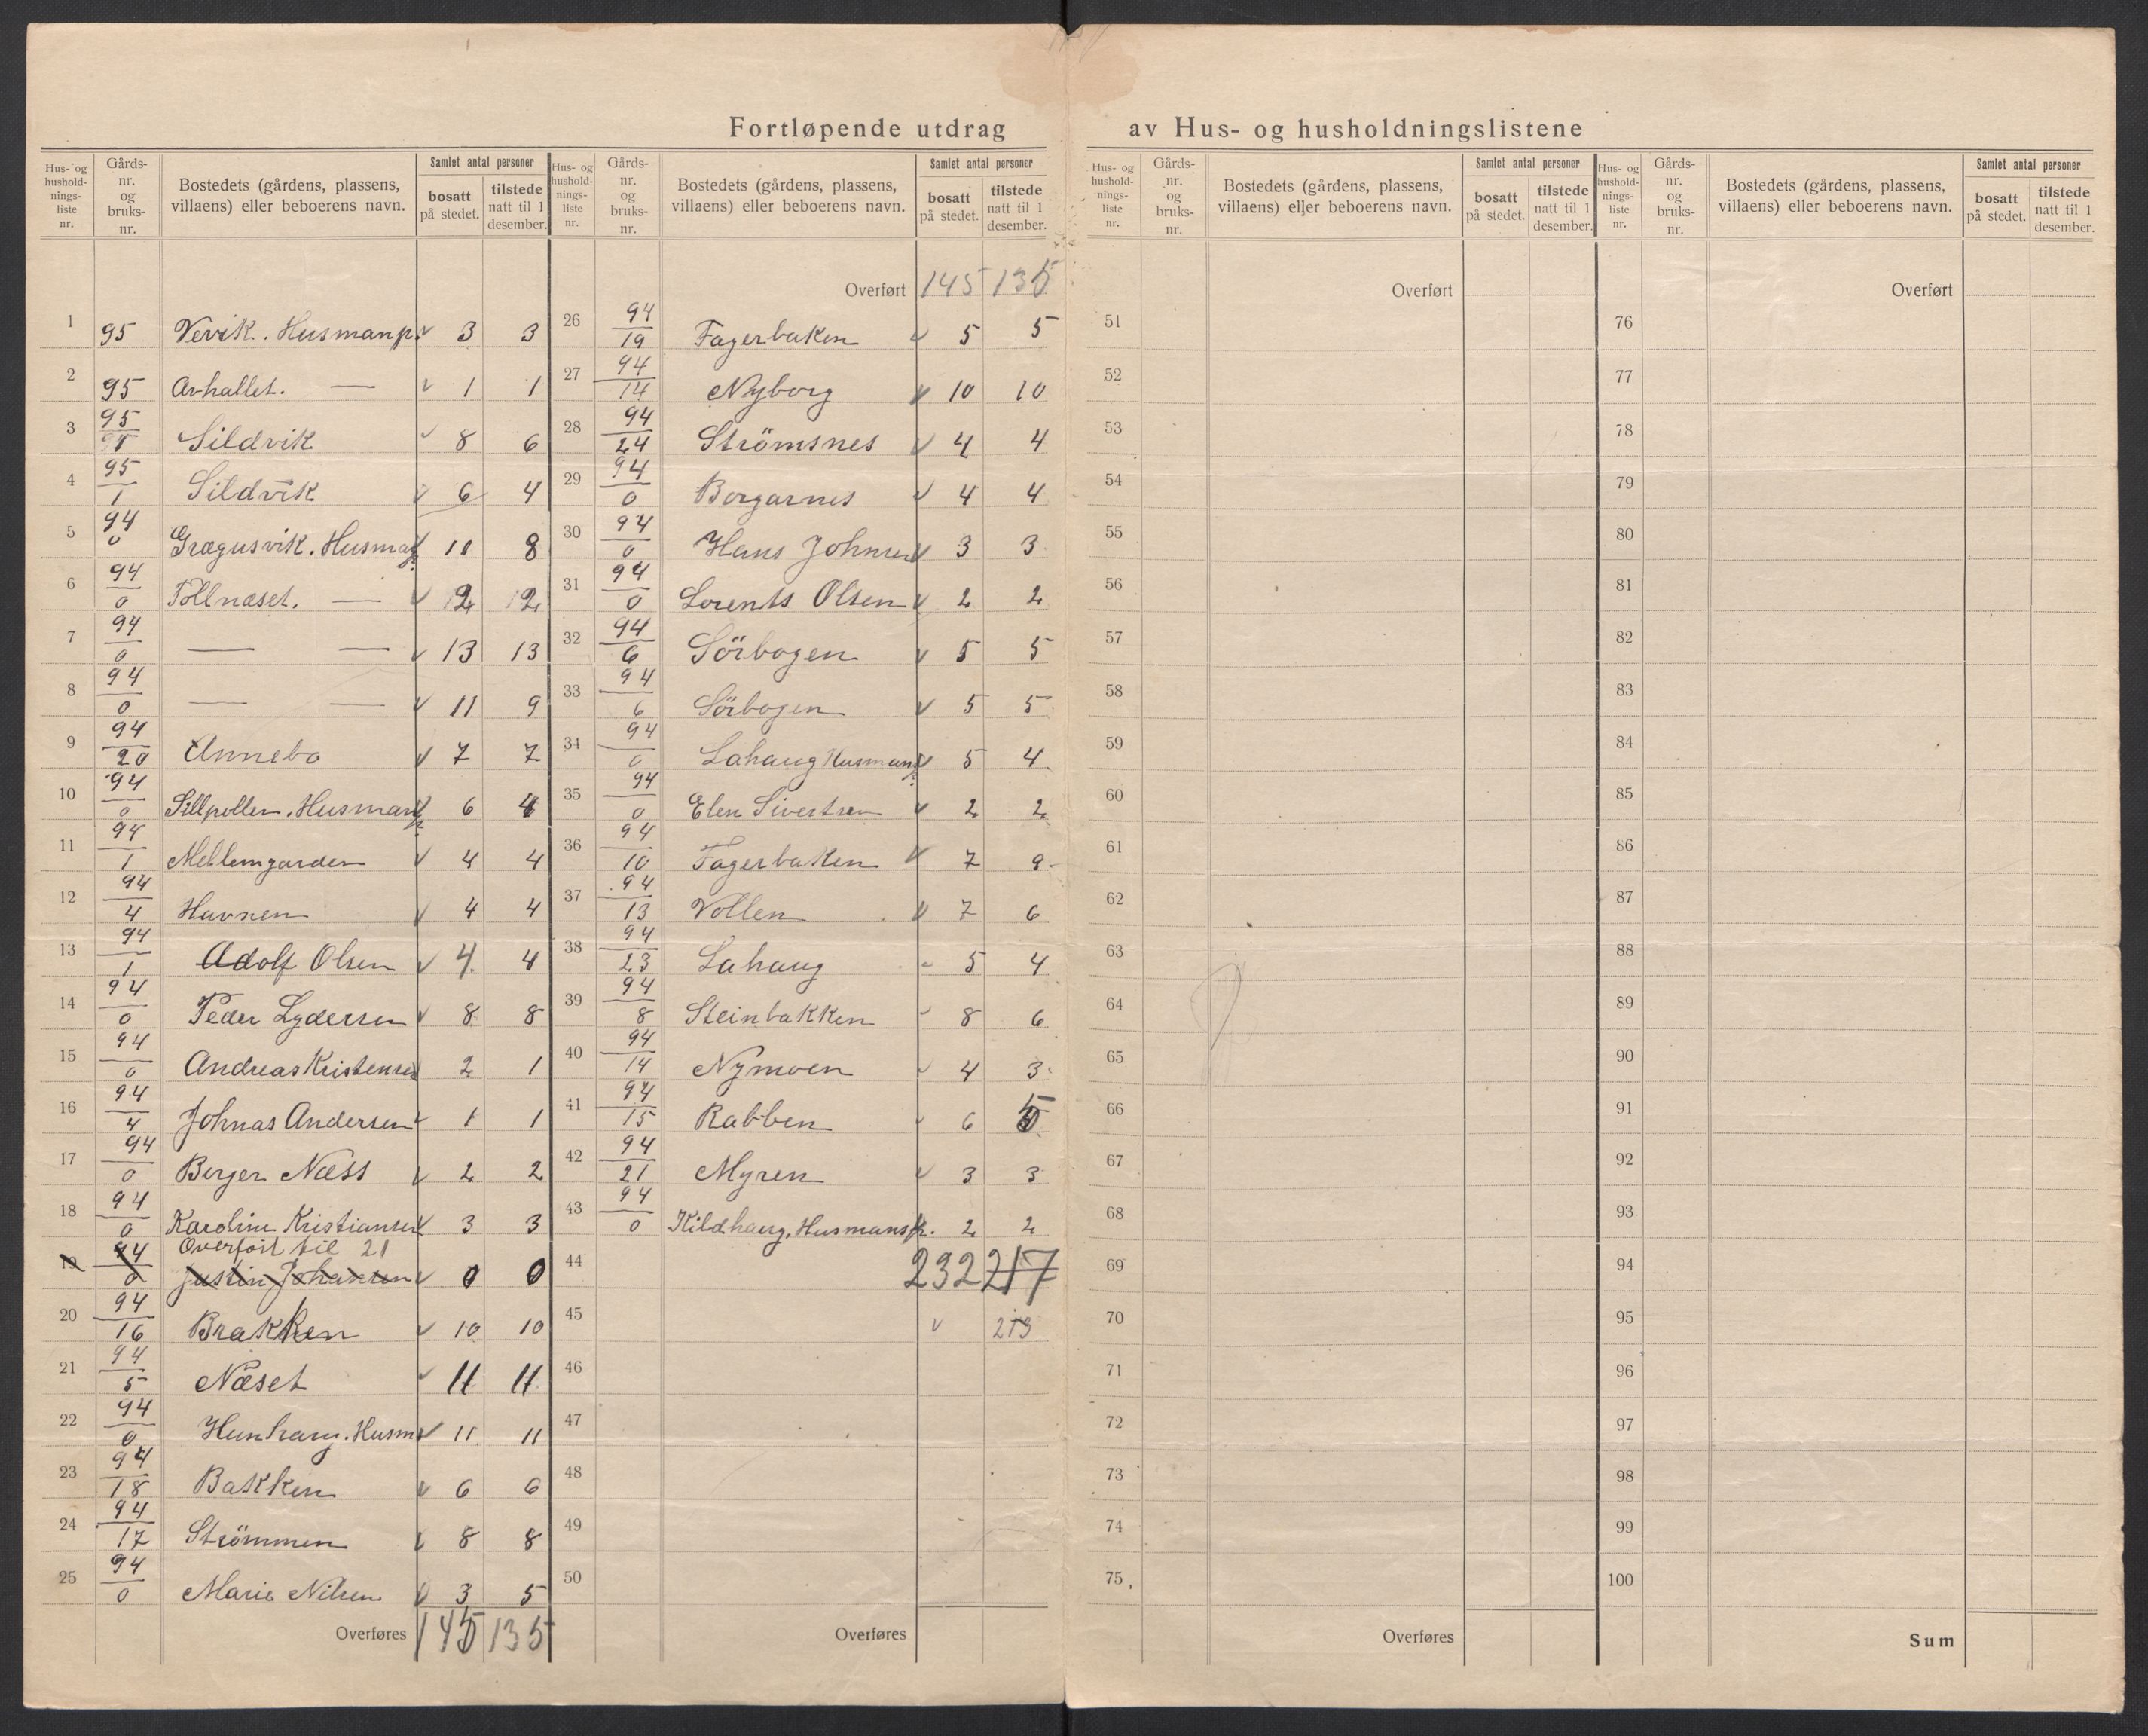 Fortløpende utdrag av Hus- og husholdningslistene
Hus- og husholdningsliste nr. | Gårds-nr. og bruks-nr. | Bostedets (gårdens, plassens, villaens) eller beboerens navn. | Samlet antal personer | bosatt på stedet. | tilstede natt til 1 desember.
1 | 95 | Vevik. Husmanp. | 3 | 3
2 | 95 | Avhallet. — | 1 | 1
3 | 95 | Sildvik | 8 | 6
4 | 95/1 | Sildvik | 6 | 4
5 | 94/0 | Grægusvik. Husma | 10 | 8
6 | 94/0 | Tollnæset. — | 12 | 12
7 | 94/0 | — — | 13 | 13
8 | 94/0 | — — | 11 | 9
9 | 94/20 | Annebo | 7 | 7
10 | 94/0 | Sillpollen. Husman | 6 | 4
11 | 94/1 | Mellemgarden | 4 | 4
12 | 94/4 | Havnen | 4 | 4
13 | 94/1 | Adolf Olsen | 4 | 4
14 | 94/0 | Peder Lydersen | 8 | 8
15 | 94/0 | Andreas Kristensen | 2 | 1
16 | 94/4 | Johnas Andersen | 1 | 1
17 | 94/0 | Berger Næss | 2 | 2
18 | 94/0 | Karoline Kristiansen | 3 | 3
Overført til 21
19 | 94/0 | Justin Johansen | 0 | 0
20 | 94/16 | Brakken | 10 | 10
21 | 94/5 | Næset | 11 | 11
22 | 94/0 | Hunhaug. Husm | 11 | 11
23 | 94/18 | Bakken | 6 | 6
24 | 94/17 | Strömmen | 8 | 8
25 | 94/0 | Marie Nilsen | 3 | 5
Overføres 145 135
Hus- og husholdningsliste nr. | Gårds-nr. og bruks-nr. | Bostedets (gårdens, plassens, villaens) eller beboerens navn. | Samlet antal personer | bosatt på stedet. | tilstede natt til 1 desember.
Overført 145 135
26 | 94/19 | Fagerbaken | 5 | 5
27 | 94/14 | Nyborg | 10 | 10
28 | 94/24 | Strömsnes | 4 | 4
29 | 94/0 | Borgarnes | 4 | 4
30 | 94/0 | Hans Johnsen | 3 | 3
31 | 94/0 | Lorents Olsen | 2 | 2
32 | 94/6 | Sörbogen | 5 | 5
33 | 94/6 | Sörbogen | 5 | 5
34 | 94/0 | Lahaug Husmansp | 5 | 4
35 | 94/0 | Elen Sivertsen | 2 | 2
36 | 94/10 | Fagerbakken | 7 | 9
37 | 94/13 | Vollen | 7 | 6
38 | 94/23 | Lahaug | 5 | 4
39 | 94/8 | Steinbakken | 8 | 6
40 | 94/14 | Nymoen | 4 | 3
41 | 94/15 | Rabben | 6 | 5
42 | 94/21 | Myren | 3 | 3
43 | 94/0 | Kildhaug, Husmanspl. | 2 | 2
44 | 232 | 217
45 | 213
46
47
48
49
50
Overføres
Hus- og husholdningsliste nr. | Gårds-nr. og bruks-nr. | Bostedets (gårdens, plassens, villaens) eller beboerens navn. | Samlet antal personer | bosatt på stedet. | tilstede natt til 1 desember.
Overført
51
52
53
54
55
56
57
58
59
60
61
62
63
64
65
66
67
68
69
70
71
72
73
74
75
Overføres
Hus- og husholdningsliste nr. | Gårds-nr. og bruks-nr. | Bostedets (gårdens, plassens, villaens) eller beboerens navn. | Samlet antal personer | bosatt på stedet. | tilstede natt til 1 desember.
Overført
76
77
78
79
80
81
82
83
84
85
86
87
88
89
90
91
92
93
94
95
96
97
98
99
100
Sum